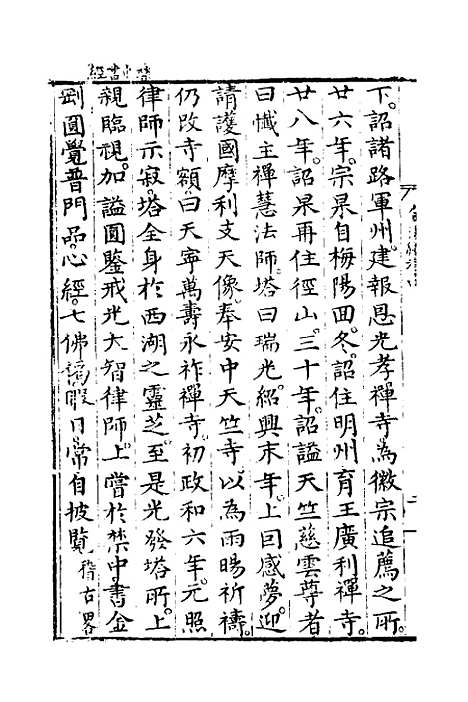 下。詔諸路軍州。建報恩光孝禪寺。為徽宗追薦之所。
廿六年。宗杲自梅陽回。冬。詔住明州育王廣利禪寺。
廿八年。詔杲再住徑山。三十年。詔謚天竺慈雲尊者
曰懺主禪慧法師。塔曰瑞光。紹興末年。上回感夢。迎
請護國摩利支天像。奉安中天竺寺。以為雨暘祈禱。
仍改寺額曰天寧萬壽永祚禪寺。初政和六年。元照
律師示寂。塔全身於西湖之靈芝。至是光發塔所。上
親臨視。加謚圓鑒戒光大智律師。上嘗於禁中書金
剛圓覺普門品。心經。七佛偈。暇日常自披覽 稽古畧